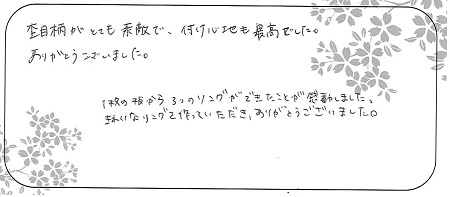 杢目柄がとても素敵で、付け心地も最高でした。
ありがとうございました。
1枚の板から3つのリングができたことが感動しました。
きれいなリングを作っていただき、ありがとうございました。